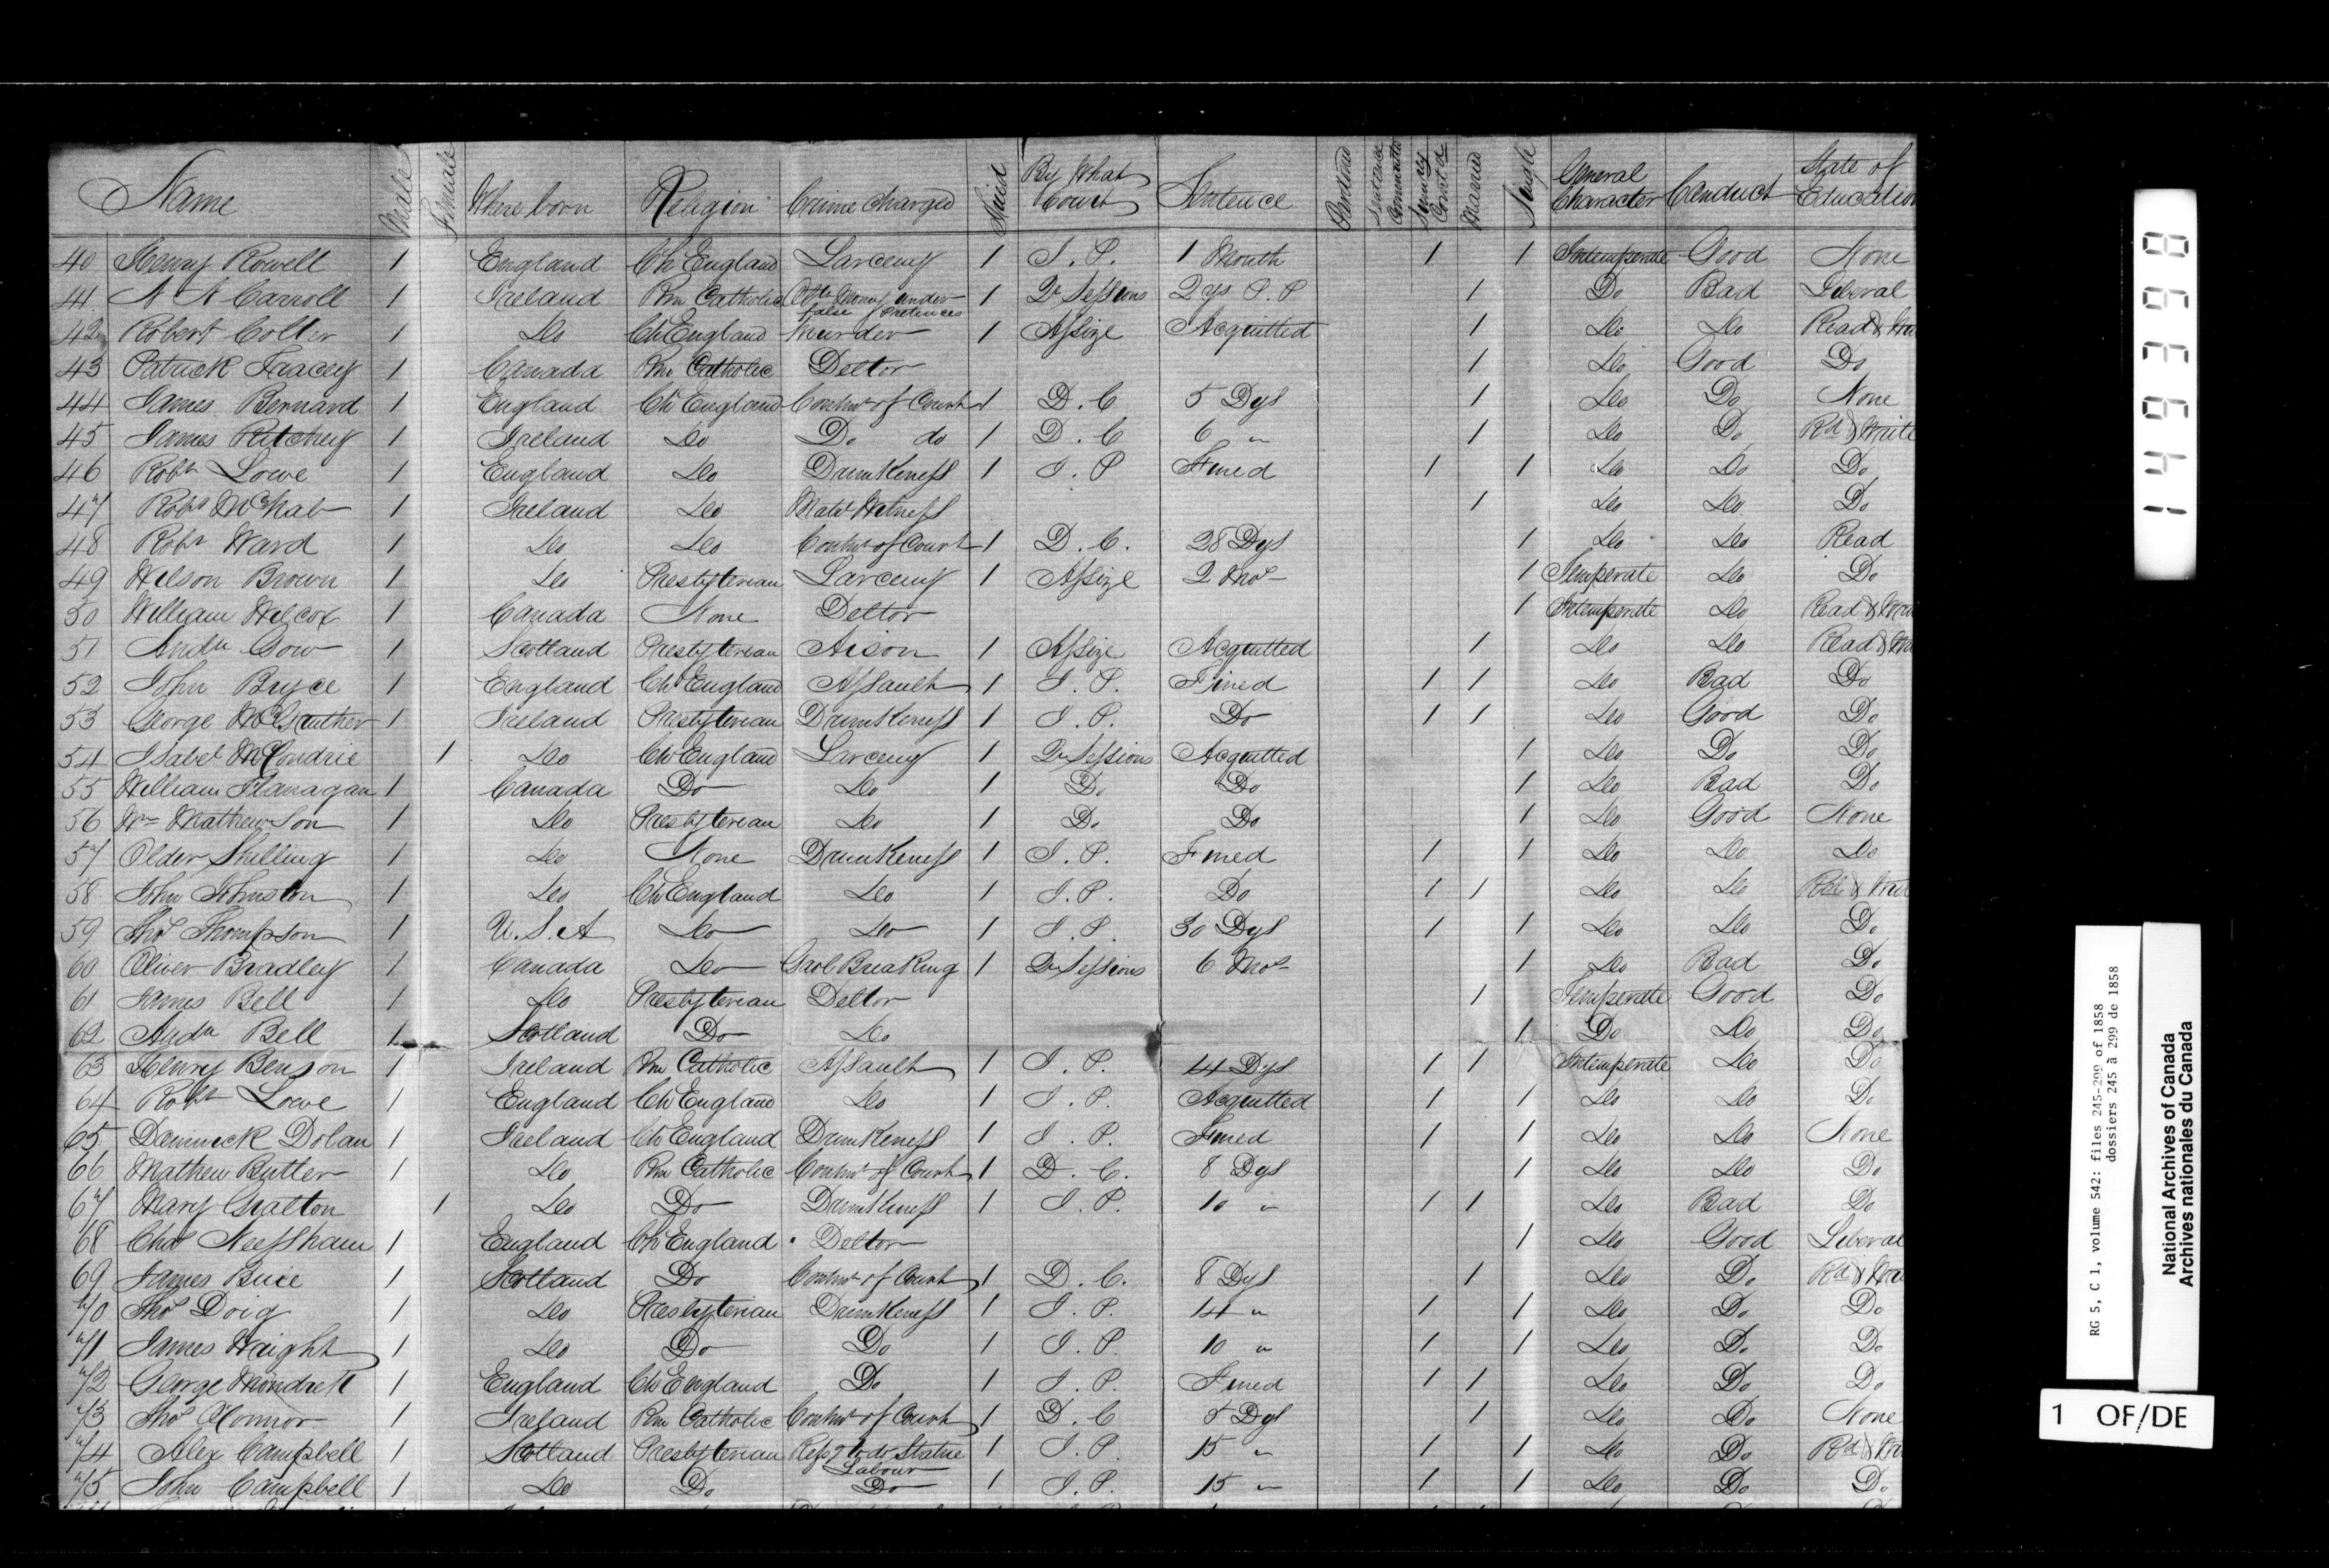 Name Male Female Where born Religion Crime Charged Tried By What Court Sentence Pardoned Sentence Commuted Sumary Conv'd Married Single General Character Conduct State of Education
40 Henry Rowell 1 England Ch England Larceny 1 J. P. 1 Month 1 1 Intemperate Good None
41 A A Carroll 1 Ireland Rm Catholic Obtg Money under false pretences 1 Qr Sessions 2 ys P. P 1 Do Bad Liberal
42 Robert Colter 1 Do Ch England Murder 1 Assize Acquitted 1 Do Do Read &
43 Patrick Tracey 1 Canada Rm Catholic Debtor 1 Do Good Do
44 James Bernard 1 England Ch England Contmt of Court 1 D. C 5 Dys 1 Do Do None
45 James Ritchey 1 Ireland Do Do do 1 D. C 6 " 1 Do Do Rd & Write
46 Robt Lowe 1 England Do Drunkeness 1 J. P Fined 1 1 Do Do Do
47 Robt McNab 1 Ireland Do Matl Witness 1 Do Do Do
48 Robt Ward 1 Do Do Contmt of Court 1 D. C. 28 Dys 1 Do Do Read
49 Wilson Brown 1 Do Presbyterian Larceny 1 Assize 2 Mos 1 Temperate Do Do
50 William Wilcox 1 Canada None Debtor 1 Intemperate Do Read &
51 Andw Gow 1 Scotland Presbyterian Arson 1 Assize Acquitted 1 Do Do Read &
52 John Bryce 1 England Ch England Assault 1 J. P. Fined 1 1 Do Bad Do
53 George McGruther 1 Ireland Presbyterian Drunkeness 1 J. P. Do 1 1 Do Good Do
54 Isabel McCondrie 1 Do Ch England Larceny 1 Qr Sessions Acquitted 1 Do Do Do
55 William Flanagan 1 Canada Do Do 1 Do Do 1 Do Bad Do
56 Wm Mathewson 1 Do Presbyterian Do 1 Do Do 1 Do Good None
57 Older Shilling 1 Do None Drunkeness 1 J. P. Fined 1 1 Do Do Do
58 John Johnston 1 Do Ch England Do 1 J. P. Do 1 1 Do Do Rd &
59 Thos Thompson 1 U. S. A Do Do 1 J. P. 30 Dys 1 1 Do Do Do
60 Oliver Bradley 1 Canada Do Gaol Breaking 1 Qr Sessions 6 Mos 1 Do Bad Do
61 James Bell 1 Do Presbyterian Debtor 1 Temperate Good Do
62 Andw Bell 1 Scotland Do Do 1 Do Do Do
63 Henry Benson 1 Ireland Rm Catholic Assault 1 J. P. 4 Dys 1 1 Intemperate Do Do
64 Robt Lowe 1 England Ch England Do 1 J. P. Acquitted 1 1 Do Do Do
65 Damnick Dolan 1 Ireland Ch England Drunkeness 1 J. P. Fined 1 1 Do Do None
66 Mathew Rutter 1 Do Rm Catholic Contmt of Court 1 D. C. 8 Dys 1 Do Do Do
67 Mary Gratton 1 Do Do Drunkeness 1 J. P. 10 " 1 1 Do Bad Do
68 Chas Neessham 1 England Ch England Debtor 1 Do Good Liberal
69 James Brice 1 Scotland Do Contmt of Court 1 D. C. 8 Dys 1 Do Do Rd &
70 Thos Doig 1 Do Presbyterian Drunkeness 1 J. P. 14 " 1 1 Do Do Do
71 James Waight 1 Do Do Do 1 J. P. 10 " 1 1 Do Do Do
72 George Mondrett 1 England Ch England Do 1 J. P. Fined 1 1 Do Do Do
73 Thos O'Connor 1 Ireland Rm Catholic Contmt of Court 1 D. C Dys 1 Do Do None
74 Alex Campbell 1 Scotland Presbyterian Refsg to do Statue Labour 1 J. P. 15 " 1 1 Do Do Rd &
75 John Campbell 1 Do Do Do 1 J. P. 15 " 1 1 Do Do Do
149398
RG 5, C 1, volume 542: files 245-299 of 1858
dossiers 245 à 299 de 1858
National Archives of Canada
Archives nationales du Canada
1 OF/DE